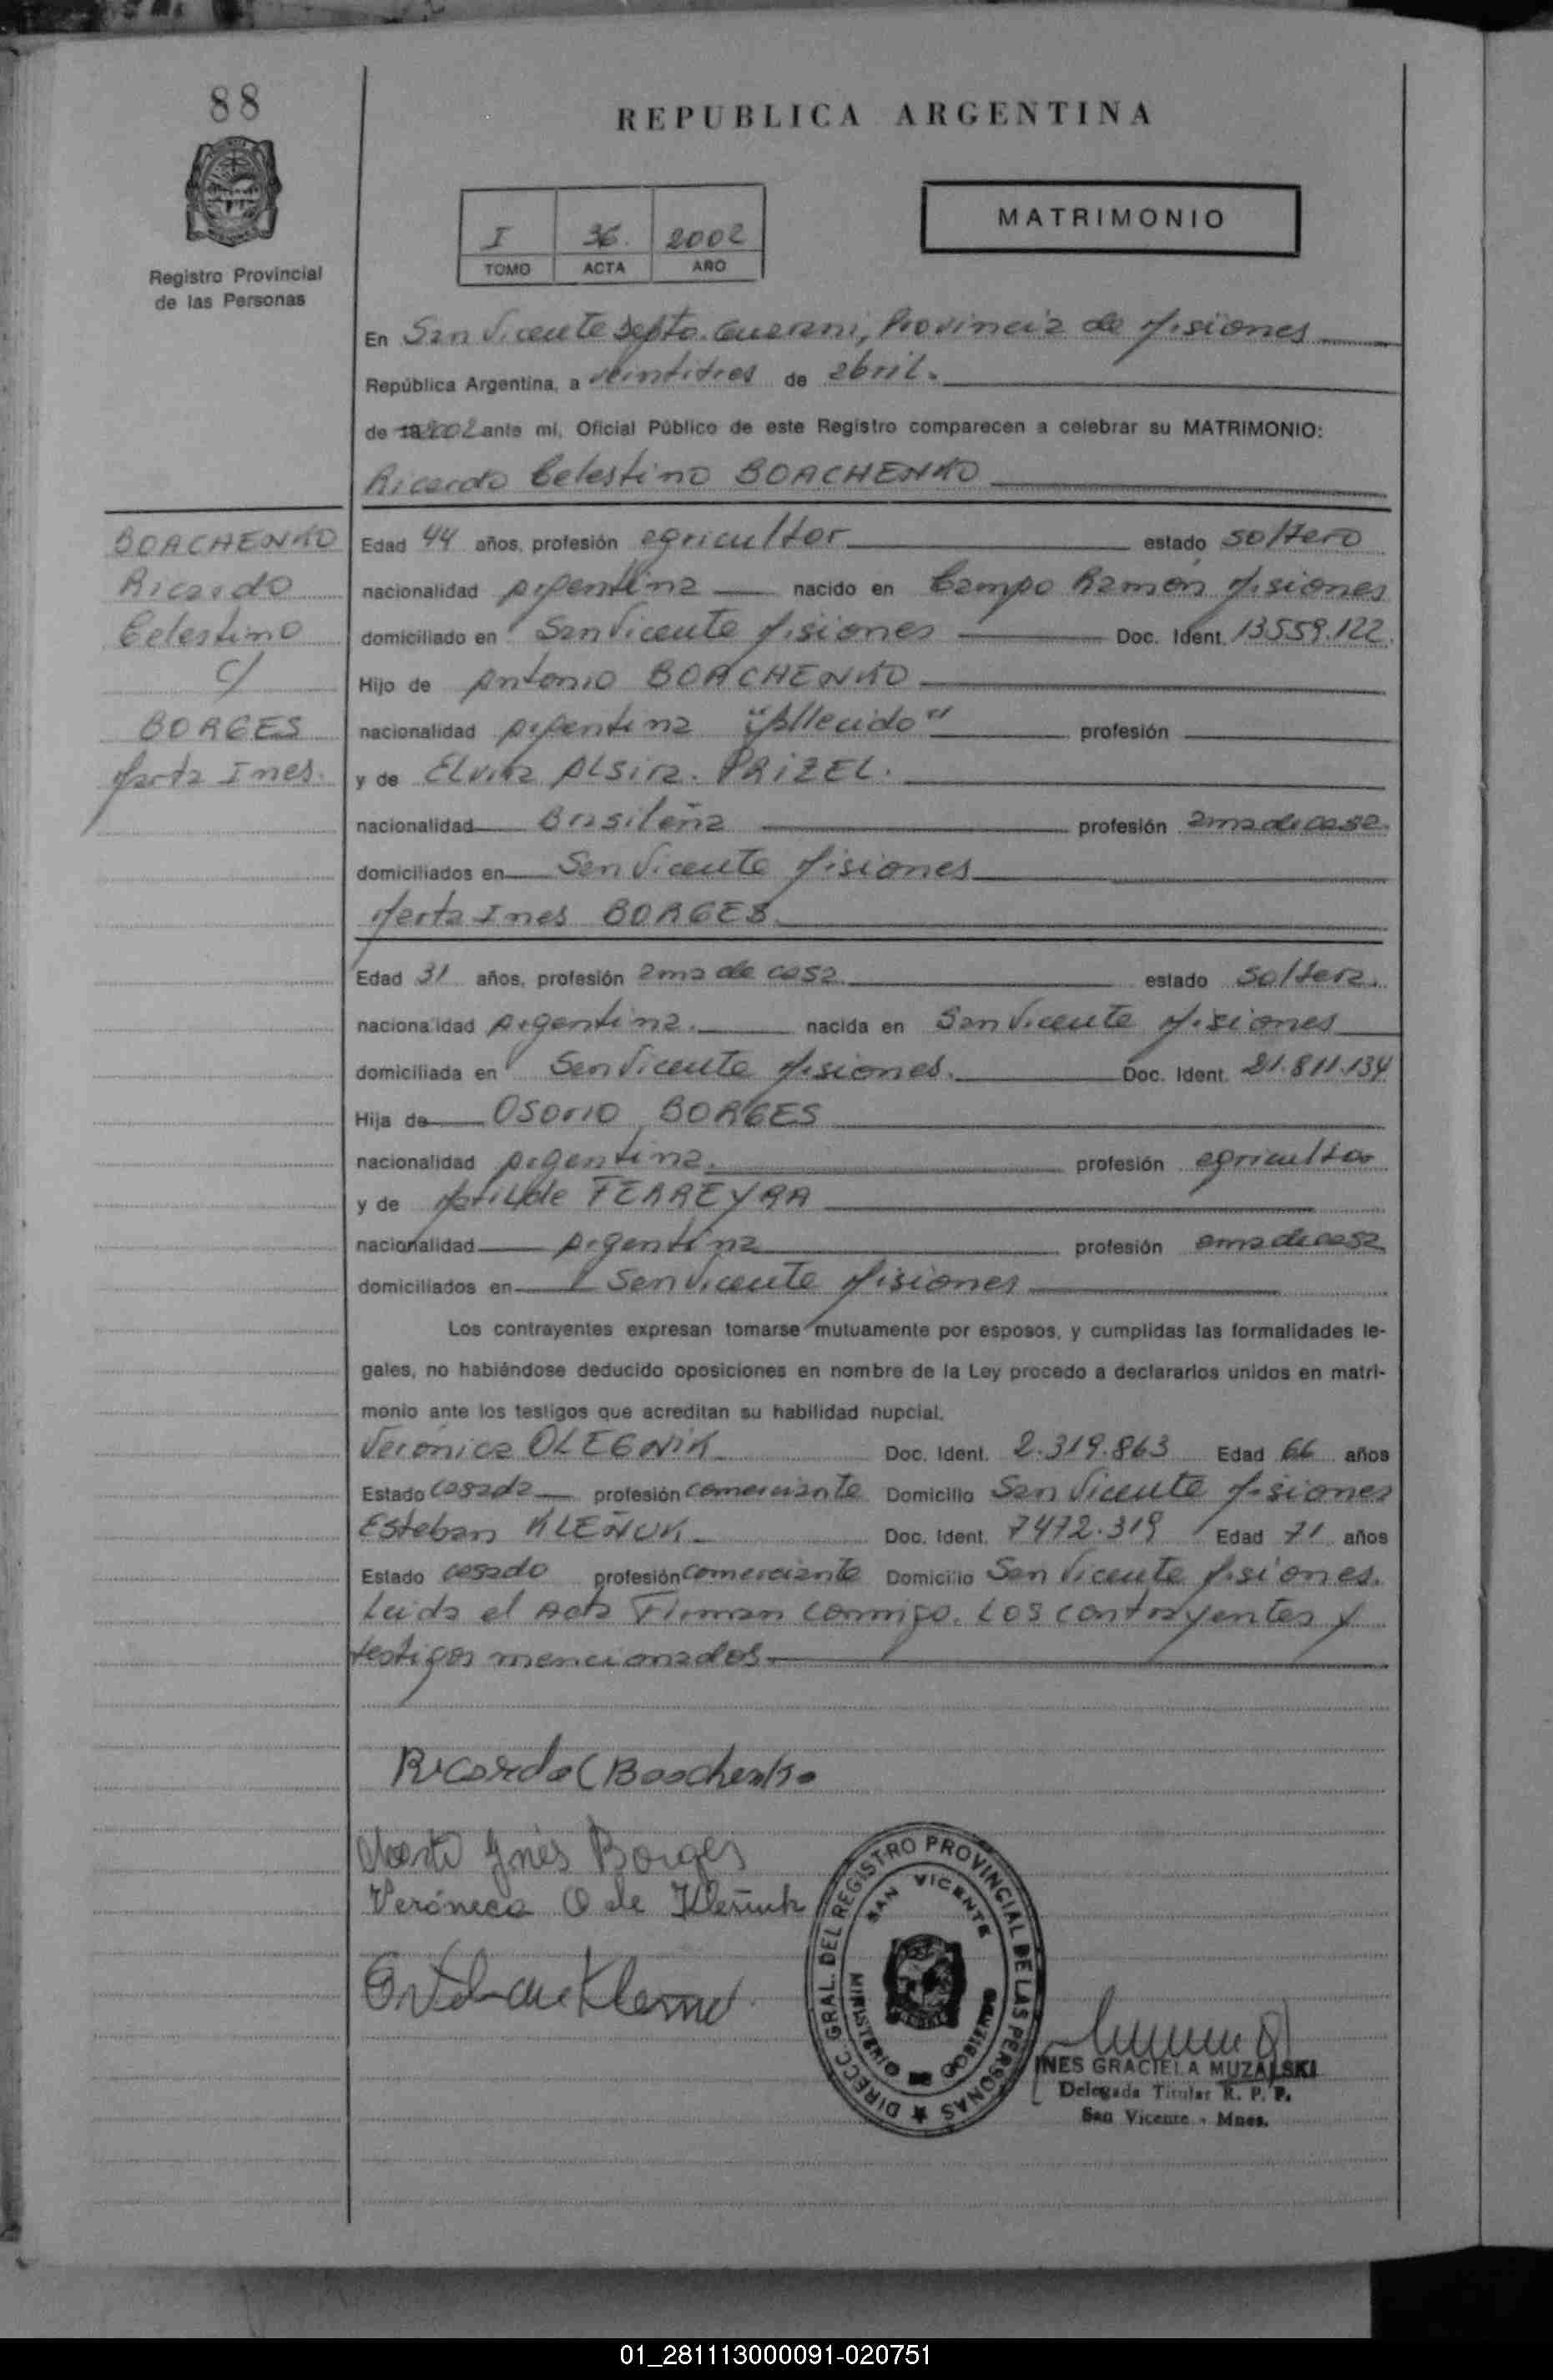 88
REPUBLICA ARGENTINA
I 36. 2002
TOMO ACTA AÑO
MATRIMONIO
Registro Provincial
de las Personas
En San Vicente Depto. Guarani, Provincia de Misiones
República Argentina, a veintitres de abril.
de 19 2002 ante mi, Oficial Público de este Registro comparecen a celebrar su MATRIMONIO:
Ricardo Celestino BOACHENKO
BOACHENKO
Ricardo
Celestino
c/
BORGES
Marta Ines.
Edad 44 años, profesión agricultor estado soltero
nacionalidad Argentina nacido en Campo Ramón Misiones
domiciliado en San Vicente Misiones Doc. Ident. 13.559.122.
Hijo de Antonio BOACHENKO
nacionalidad Argentina "fallecido" profesión
y de Elvira Alsira. PRIZEL.
nacionalidad Brasileña profesión ama de casa.
domiciliados en San Vicente Misiones
Marta Ines BORGES
Edad 31 años, profesión ama de casa. estado soltera.
nacionalidad Argentina. nacida en San Vicente Misiones
domiciliada en San Vicente Misiones. Doc. Ident. 21.811.134
Hija de Osorio BORGES
nacionalidad Argentina. profesión agricultor
y de Matilde FERREYRA
nacionalidad Argentina profesión ama de casa
domiciliados en San Vicente Misiones
Los contrayentes expresan tomarse mutuamente por esposos, y cumplidas las formalidades le-
gales, no habiéndose deducido oposiciones en nombre de la Ley procedo a declararlos unidos en matri-
monio ante los testigos que acreditan su habilidad nupcial.
Verónica OLEGNIK Doc. Ident. 2.319.863 Edad 66 años
Estado casada profesión comerciante Domicilio San Vicente Misiones
Esteban KLEÑUK Doc. Ident. 7472.319 Edad 71 años
Estado casado profesión comerciante Domicilio San Vicente Misiones.
Leida el Acta Firman conmigo. Los contrayentes y
testigos mencionados.
Ricardo C Boachenko
Marta Inés Borges
Verónica O de Kleñuk
DIRECC. GRAL. DEL REGISTRO PROVINCIAL DE LAS PERSONAS
SAN VICENTE
MINISTERIO DE GOBIERNO
INES GRACIELA MUZALSKI
Delegada Titular R. P. P.
San Vicente - Mnes.
01_281113000091-020751